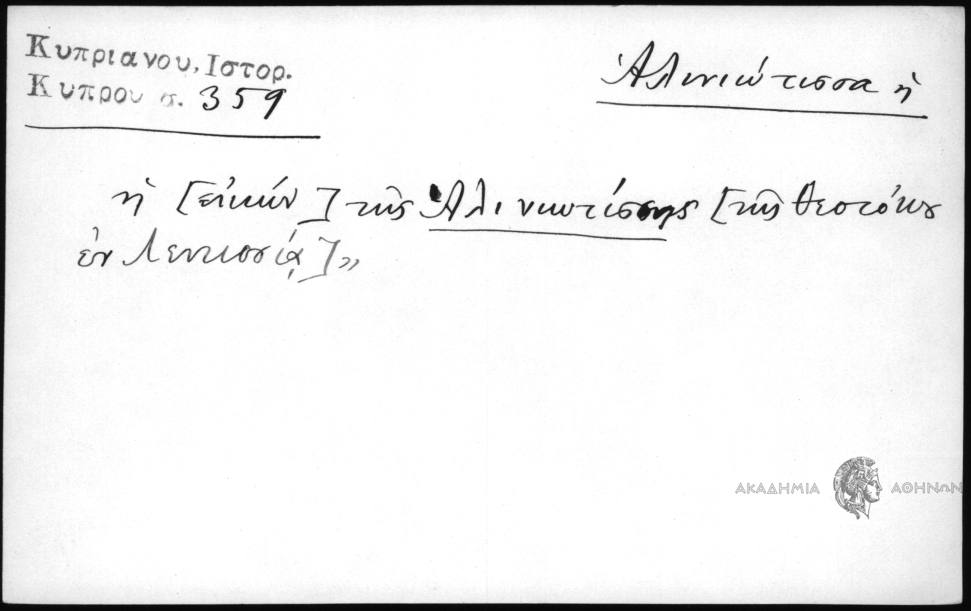 Κυπριανου, Ιστορ.
Κυπρου σ. 359
Ἁλινιώτισσα ἡ
ἡ [εἰκών] τῆς Ἁλινιωτίσσης [τῆς Θεοτόκου
ἐν Λευκοσίᾳ]»
ΑΚΑΔΗΜΙΑ ΑΘΗΝΩΝ